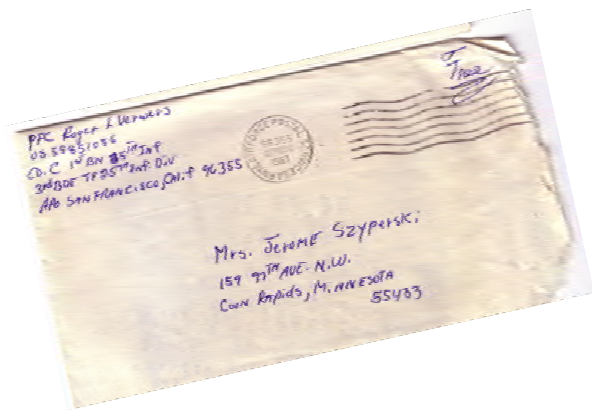 PFC Roger L Verwers
CO. C 1st BN 35th Inf
3rd BDE TF 25th Inf. Div
APO SAN FRANCISCO, Calif 96355
Free
Mrs. Jerome Szyperski
159 97th AVE. N.W.
Coon Rapids, MINNESOTA
55433